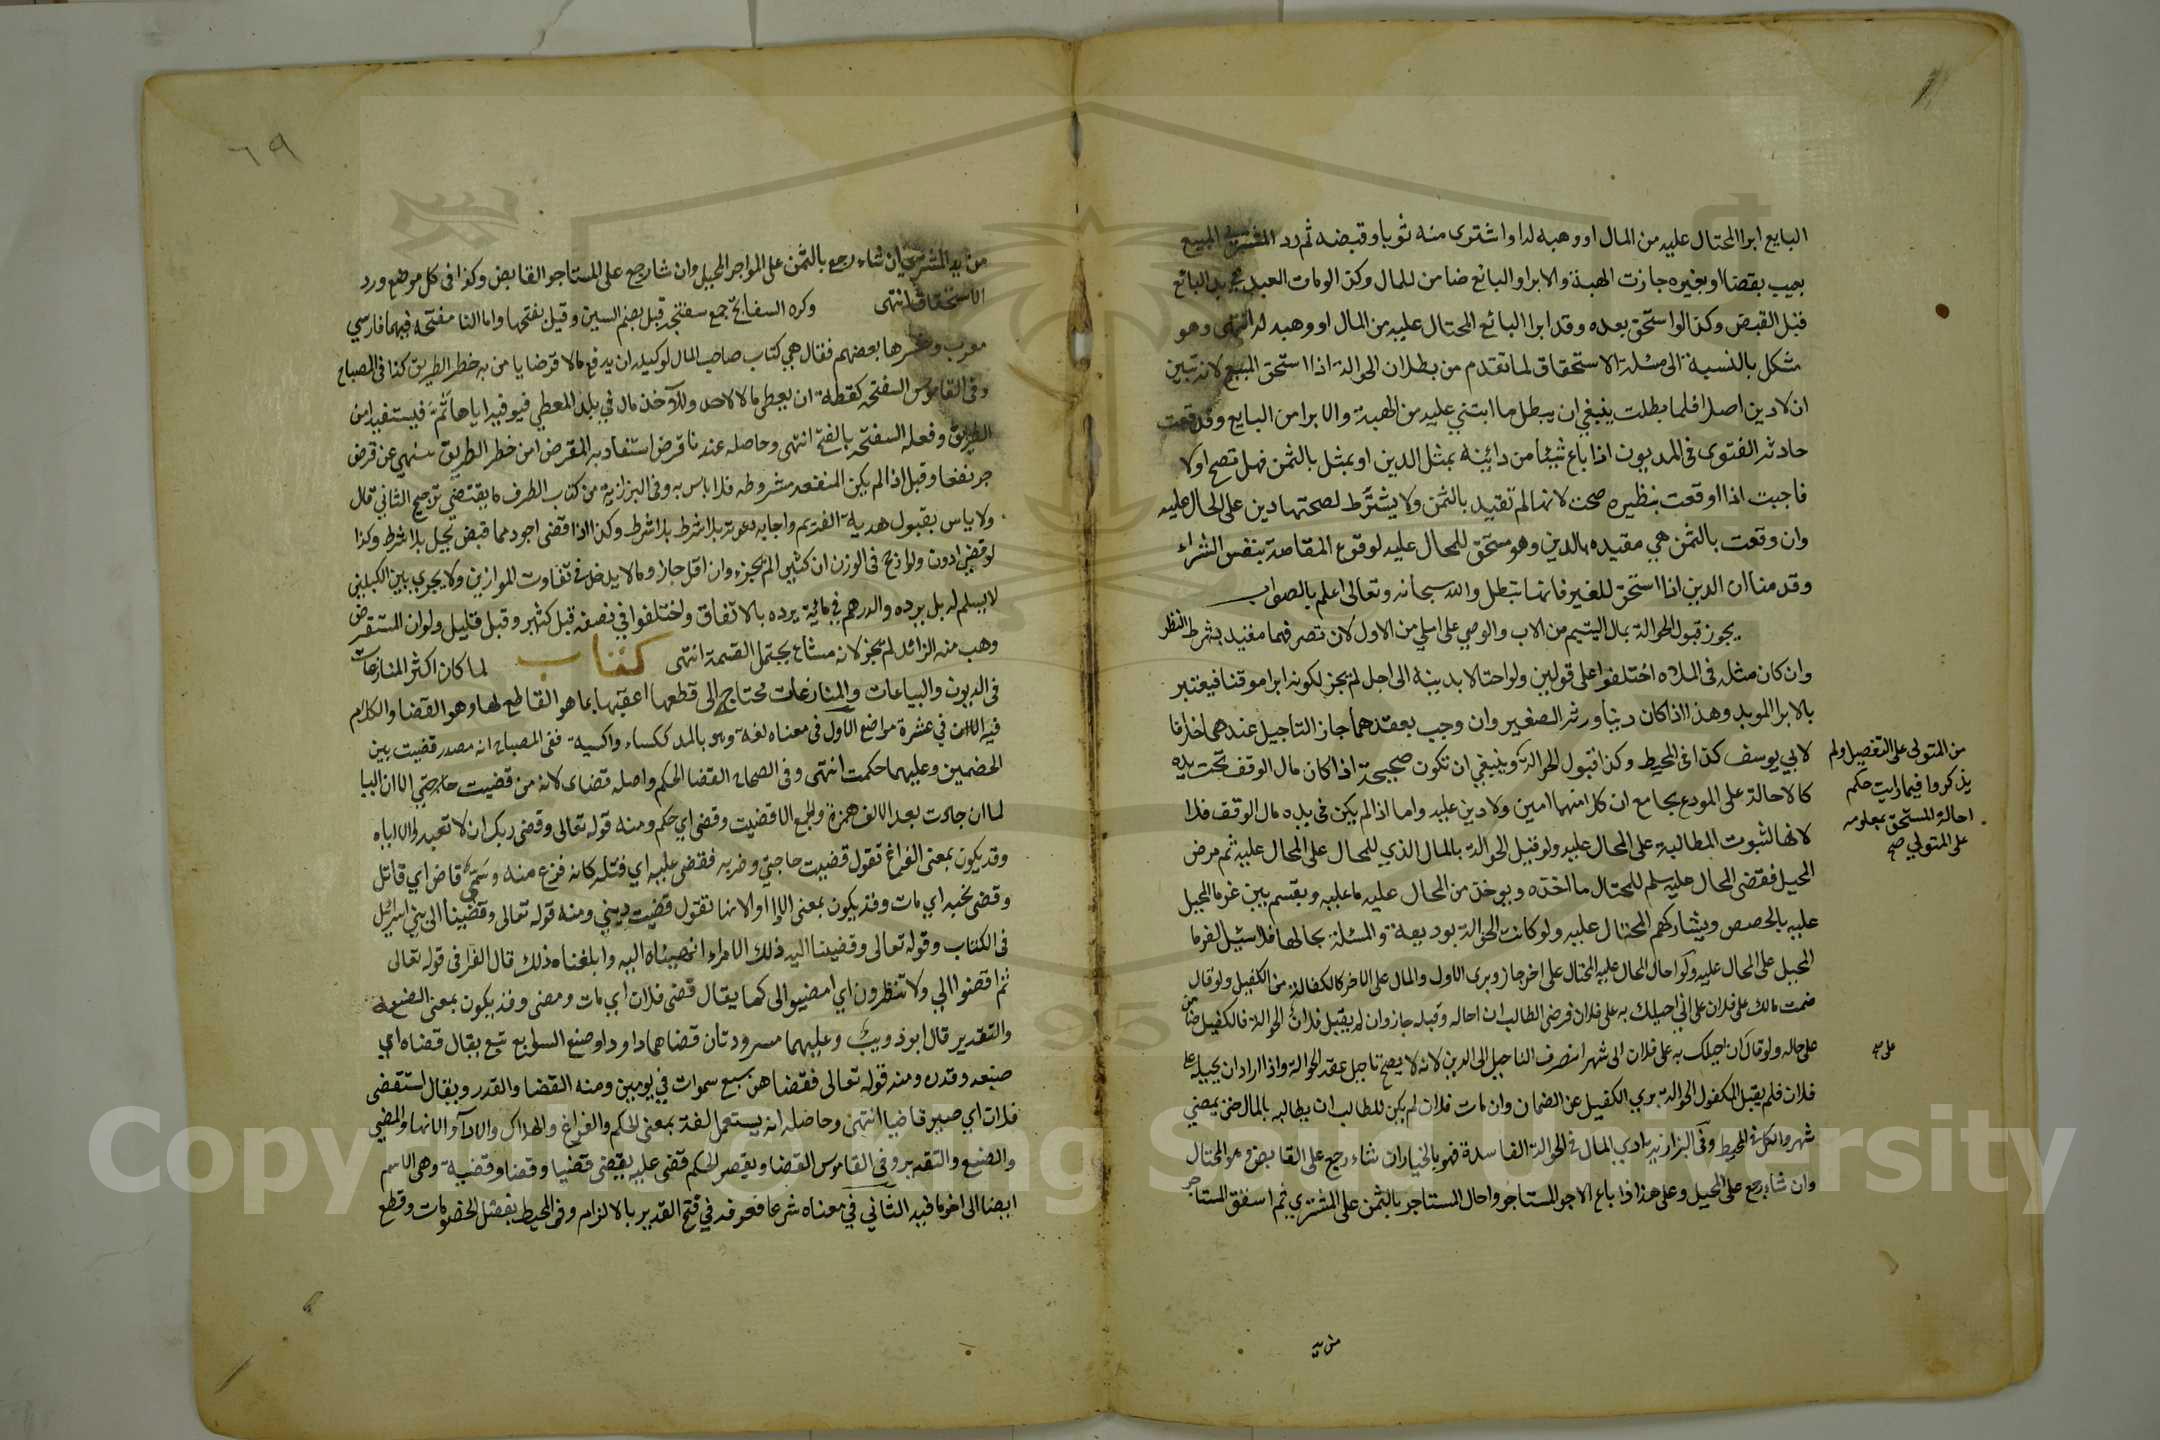 البايع ابرا المحتال عليه من المال او وهبه له او اشترى منه ثوبا وقبضه ثم رد المشترى المبيع
بعيب بقضا او بغيره جازت الهبة والابرا والبائع ضامن للمال وكذا لو مات العبد في يد البائع
قبل القبض وكذا لو استحق بعده وقد ابرا البائع المحتال عليه من المال او وهبه له انتهى وهو
مشكل بالنسبة الى مسئلة الاستحقاق لما تقدم من بطلان الحوالة اذا استحق المبيع لانه تبين
ان لا دين اصلا فلما بطلت ينبغي ان يبطل ما ابتني عليه من الهبة والابرا من البايع وقد وقعت
حادثة الفتوى في المديون اذا باع شيئا من دائينه بمثل الدين او بمثل بالثمن فهل تصح او لا
فاجبت اذا وقعت بنظيره صحت لانها لم تقيد بالثمن ولا يشترط لصحتها دين على المحال عليه
وان وقعت بالثمن هي مقيده بالدين وهو مستحق للمحال عليه لوقوع المقاصة بنفس الشراء
وقد منا ان الدين اذا استحق للغير فانها تبطل والله سبحانه وتعالى اعلم بالصواب
يجوز قبول الحوالة بمال اليتيم من الاب والوصي على املي من الاول لان تصرفهما مقيد بشرط النظر
وان كان مثله في الملاه اختلفوا على قولين ولو احتالا بدينه الى اجل لم يجز لكونه ابرا موقتا فيعتبر
بالابرا الموبد وهذا اذا كان دينا ورثه الصغير وان وجب بعقدهما جاز التاجيل عندهما خلافا
لابي يوسف كذا في المحيط وكذا قبول الحوالة وينبغي ان تكون صحيحة اذا كان مال الوقف تحت يده
كالاحالة على المودع بجامع ان كلا منهما امين ولا دين عليه واما اذا لم يكن في يده مال الوقف فلا
لانها لثبوت المطالبة على المحال عليه ولو قبل الحوالة بالمال الذي للمحال على المحال عليه ثم مرض
المحيل فقضى المحال عليه سلم للمحتال ما اخذه ويوخذ من المحال عليه ما عليه ويقسم بين غرما المحيل
عليه بالحصص ويشاركهم المحتال عليه ولو كانت الحوالة بوديعة والمسئلة بحالها فلا سبيل لغرما
المحيل على المحال عليه ولو احال المحال عليه المحتال على اخر جاز وبرى الاول والمال على الاخر كالكفالة من الكفيل ولو قال
ضمنت مالك على فلان على اني احيلك به على فلان فرضى الطالب ان احاله وقبله جاز وان لم يقبل فلان الحوالة فالكفيل ضامن
على حاله ولو قال ان احيلك به على فلان الى شهر انصرف التاجيل الى الدين لانه لا يصح تاجيل عقد الحوالة واذا اراد ان يحيله على
فلان فلم يقبل المكفول الحوالة برى الكفيل عن الضمان وان مات فلان لم يكن للطالب ان يطالبه بالمال حتى يمضي
شهر والكل في المحيط وفي البزازية ادى المال في الحوالة الفاسدة فهو بالخيار ان شاء رجع على القابض وهو المحتال
وان شاء رجع على المحيل وعلى هذا اذا باع الاجر المستاجر واحال المستاجر بالثمن على المشتري ثم استحق المستاجر
من المتولى على التفصيل ولم
يذكروا فيما رايت حكم
احالة المستحق بمعلومه
على المتولي صح
من يد
٦٩
من يد المشتري ان شاء رجع بالثمن على المواجر المحيل وان شا رجع على المستاجر القابض وكذا في كل موضع ورد
الاستحقاق انتهى وكره السفاتج جمع سفتجه قيل بضم السين وقيل بفتحها واما التا مفتحه فيهما فارسي
معرب وفسرها بعضهم فقال هي كتاب صاحب المال لوكيله ان يدفع مالا قرضا يامن به خطر الطريق كذا في المصباح
وفي القاموس السفتجه كقرطة ان يعطي مالا لاحد وللاخذ مال في بلد المعطي فيوفيه اياها ثم فيستفيد امن
الطريق وفعله السفتجه بالفتح انتهى وحاصله عندنا قرض استفاد به المقرض امن خطر الطريق للنهي عن قرض
جر نفعا وقيل اذا لم يكن المنفعه مشروطه فلا باس به وفي البزازية من كتاب الصرف ما يقتضي ترجيح الثاني قال
ولا باس بقبول هدية الغريم واجابه دعوته بلا شرط وكذا اذا قضى اجود مما قبض يحل بلا شرط وكذا
لو قضى ادون ولو ارجح في الوزن ان كثير لم يجزء وان اقل جاز وما لا يدخل في تفاوت الموازين ولا يجري بين الكيلين
لا يسلم له بل يرده والدرهم في مائية يرده بالاتفاق واختلفوا في نصفه قيل كثير وقيل قليل ولو ان المستقرض
وهب منه الزائد لم يجز لانه مشاع يحتمل القسمة انتهى كتاب لما كان اكثر المنازعات
في الديون والبياعات والمنازعات محتاج الى قطعها اعقبها بما هو القاطع لها وهو القضا والكلام
فيه الان في عشرة مواضع الاول في معناه لغة وهو بالمد ككساء واكسية ففي المصباح انه مصدر قضيت بين
الخصمين وعليهما حكمت انتهى وفي الصحاح القضا الحكم واصله قضاى لانه من قضيت الا ان اليا
لما ان جاءت بعد الالف همزة والجمع الاقضية وقضى اي حكم ومنه قوله تعالى وقضى ربك ان لا تعبدوا الا اياه
وقد يكون بمعنى الفراغ تقول قضيت حاجتي وضربه فقضى عليه اي قتله كانه فرغ منه وسم قاض اي قاتل
وقضى نحبه اي مات وقد يكون بمعنى الادا والانها تقول قضيت ديني ومنه قوله تعالى وقضينا الى بني اسرائيل
في الكتاب وقوله تعالى وقضينا اليه ذلك الامر اي انهيناه اليه وابلغناه ذلك قال الفرا في قوله تعالى
ثم اقضوا الي ولا تنظرون اي امضوا الى كما يقال قضى فلان اي مات ومضى وقد يكون بمعنى الصنع
والتقدير قال ابو ذويب وعليهما مسرودتان قضاهما داود او صنع السوابع تبع يقال قضاه اي
صنعه وقدره ومنه قوله تعالى فقضاهن سبع سموات في يومين ومنه القضا والقدر ويقال استقضى
فلان اي صير قاضيا انتهى وحاصله انه يستعمل لغة بمعنى الحكم والفراغ والهلاك والادا والانها والمضي
والصنع والتقدير وفي القاموس القضا ويقصر الحكم قضى عليه يقضي قضيا وقضا وقضية وهي الاسم
ايضا الى اخر ما فيه الثاني في معناه شرعا فعرفه في فتح القدير بالالزام وفي المحيط بفصل الخصومات وقطع
Copyright © King Saud University